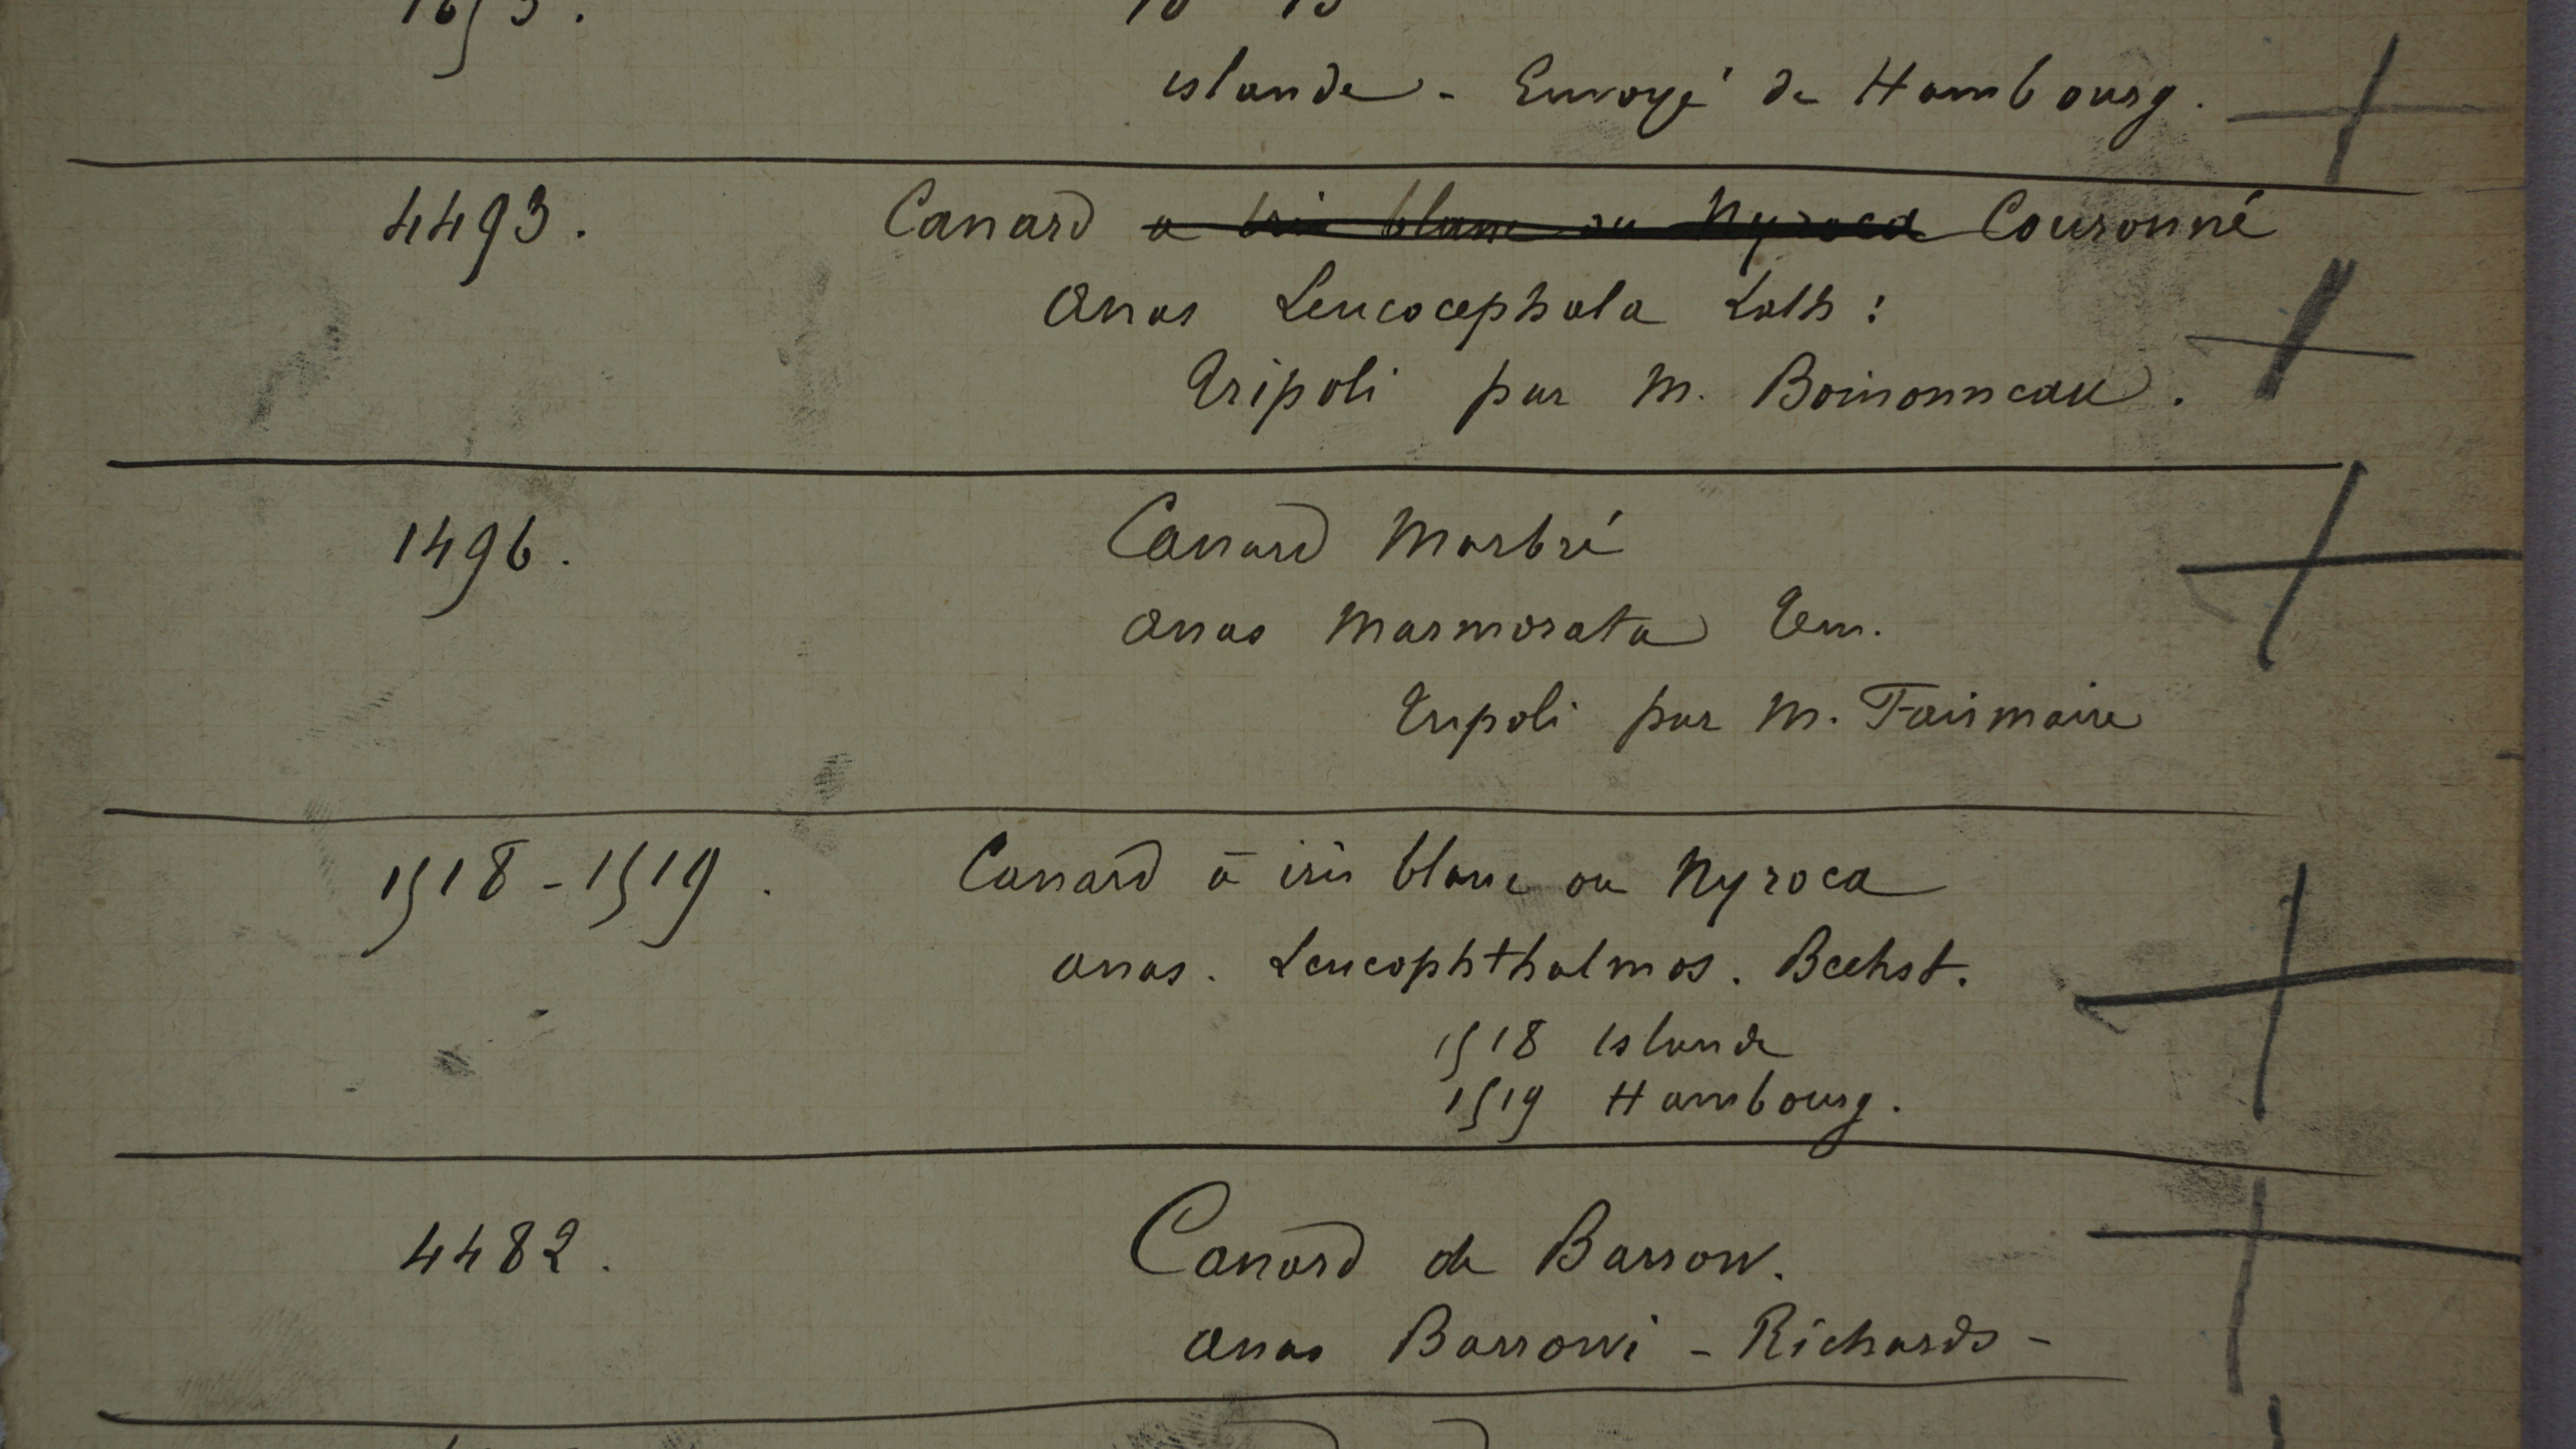 islande - Envoyé de Hambourg.
4493. Canard a iris blanc ou Nyroca Couronné
Anas Leucocephala Lath :
Tripoli par M. Boissonneau.
1496. Canard Marbré
Anas Marmorata Tem.
Tripoli par M. Fairmaire
1518 - 1519. Canard à iris blanc ou Nyroca
Anas. Leucophthalmos. Bechst.
1518 Islande
1519 Hambourg.
4482. Canard de Barrow.
Anas Barrowi - Richards -